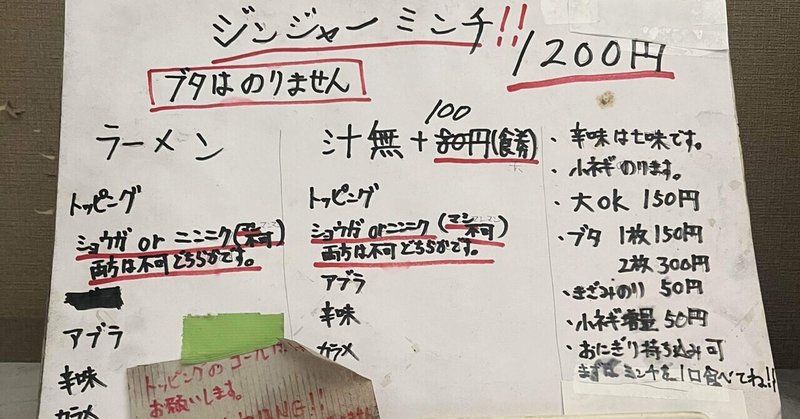 ジンジャーミンチ!!
1200円
ブタはのりません
ラーメン
トッピング
ショウガ or ニンニク(マシ不可)
両方は不可どちらかです。
アブラ
辛味
カラメ
汁無+80円(食券)
100
トッピング
ショウガ or ニンニク(マシ不可)
両方は不可どちらかです。
アブラ
辛味
カラメ
・辛味は七味です。
・小ネギのります。
・大ok 150円
・ブタ 1枚150円
2枚300円
・きざみのり 50円
・小ネギ増量 50円
・おにぎり持ち込み可
まずはミンチを1口食べてね!!
トッピングのコールは
お願いします。